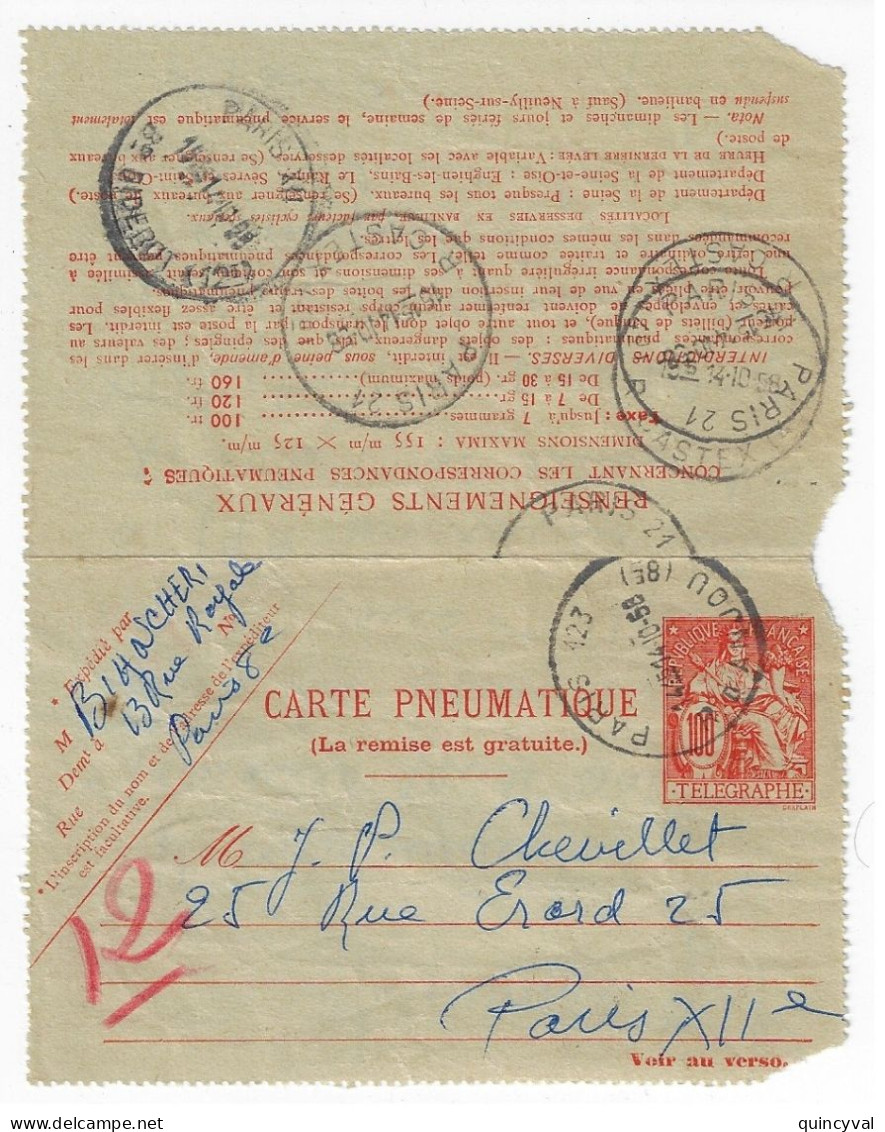 RENSEIGNEMENTS GÉNÉRAUX
CONCERNANT LES CORRESPONDANCES PNEUMATIQUES
DIMENSIONS MAXIMA : 155 m/m × 125 m/m
Taxe : Jusqu'à 7 grammes. 100 fr
De 7 à 15 gr. 120 fr
De 15 à 30 gr. (poids maximum) 160 fr
INTERDICTIONS DIVERSES. — Il est interdit, sous peine d'amende, d'insérer dans les
correspondances pneumatiques : des objets dangereux tels que les épingles ; des valeurs au
porteur (billets de banque), et tout autre objet dont le transport par la poste est interdit. Les
cartes et enveloppes ne doivent renfermer aucun corps résistant et être assez flexibles pour
pouvoir être pliées en vue de leur insertion dans les boîtes des trains pneumatiques.
Toute correspondance irrégulière quant à ses dimensions sera considérée comme assimilée à
une lettre ordinaire et traitée comme telle. Les correspondances pneumatiques peuvent être
recommandées dans les mêmes conditions que les lettres.
LOCALITÉS DESSERVIES EN BANLIEUE par facteurs cyclistes spéciaux.
Département de la Seine : Presque tous les bureaux. (Se renseigner aux bureaux de poste.)
Département de la Seine-et-Oise : Enghien-les-Bains, Le Raincy, Sèvres et Saint-Cloud.
HEURE DE LA DERNIÈRE LEVÉE : Variable avec les localités desservies. (Se renseigner aux bureaux
de poste.)
Nota. — Les dimanches et jours fériés de semaine, le service pneumatique est totalement
suspendu en banlieue. (Sauf à Neuilly-sur-Seine.)
PARIS XII
PARIS 21
R. CASTEX
PARIS 21
R. CASTEX
14-10-58
PARIS 21
PARIS 123
14-10-58
(8E)
* Expédié par
M BIHASCHERI
Demt à
13 Rue Royale
Rue
N°
Paris 8e
* L'inscription du nom et de l'adresse de l'expéditeur
est facultative.
CARTE PNEUMATIQUE
(La remise est gratuite.)
RÉPUBLIQUE FRANÇAISE
100
TELEGRAPHE
CHAPLAIN
M J. P. Chevillet
25 Rue Erard 25
Paris XIIe
12
Voir au verso.
quincyval